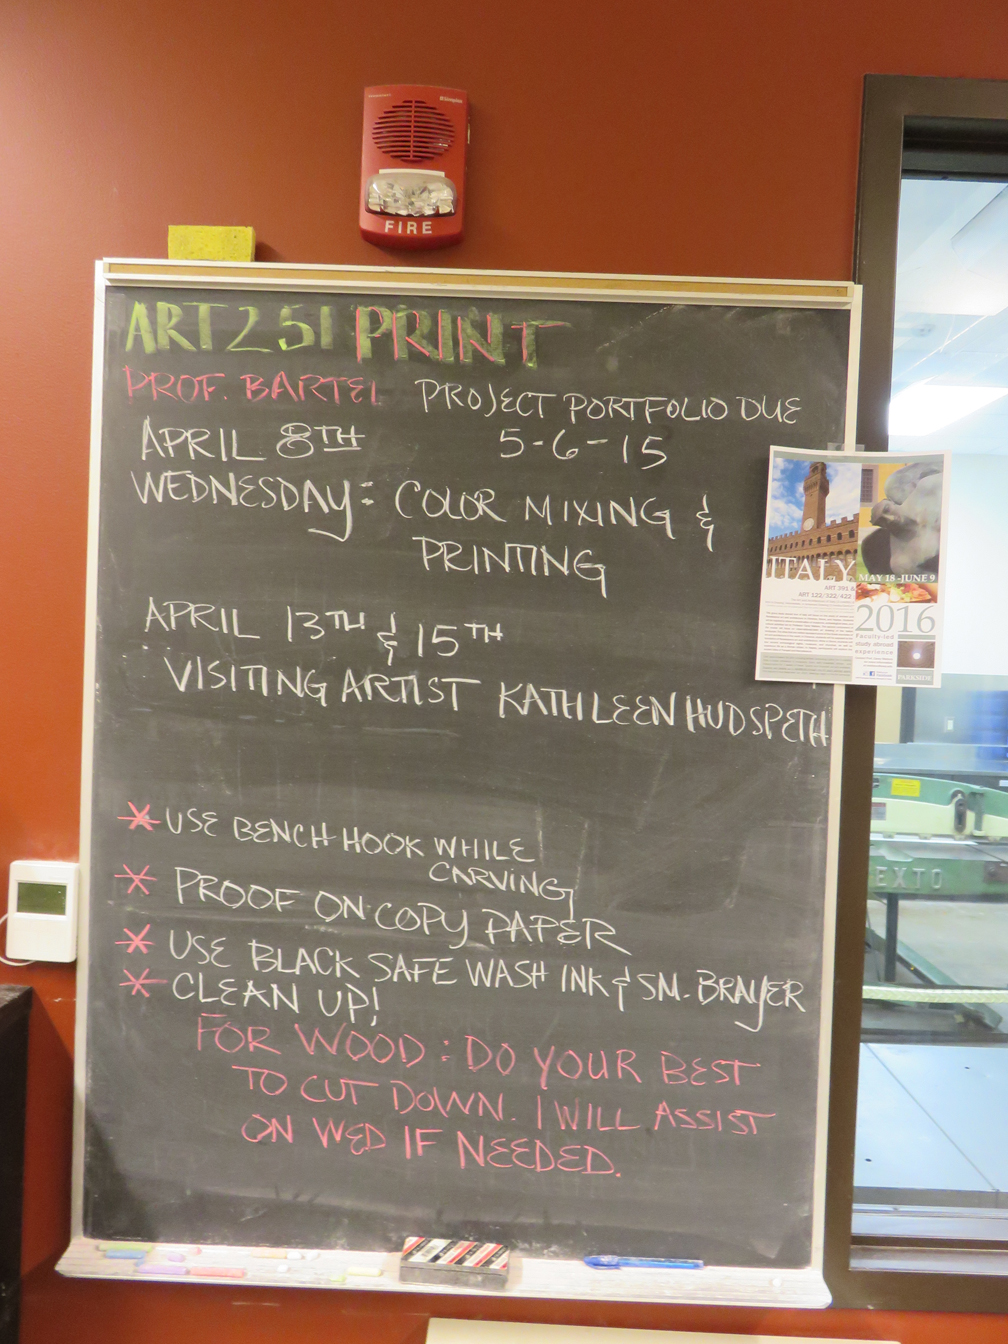 FIRE
ART 251 PRINT
PROF. BARTEL
PROJECT PORTFOLIO DUE
5-6-15
APRIL 8TH
WEDNESDAY: COLOR MIXING &
PRINTING
APRIL 13TH & 15TH
VISITING ARTIST KATHLEEN HUDSPETH
* USE BENCH HOOK WHILE
CARVING
* PROOF ON COPY PAPER
* USE BLACK SAFE WASH INK & SM. BRAYER
* CLEAN UP!
FOR WOOD: DO YOUR BEST
TO CUT DOWN. I WILL ASSIST
ON WED IF NEEDED.
ITALY
MAY 18 -JUNE 9
ART 122/322/422
2016
Faculty-led
study abroad
experience
PARKSIDE
EXTO